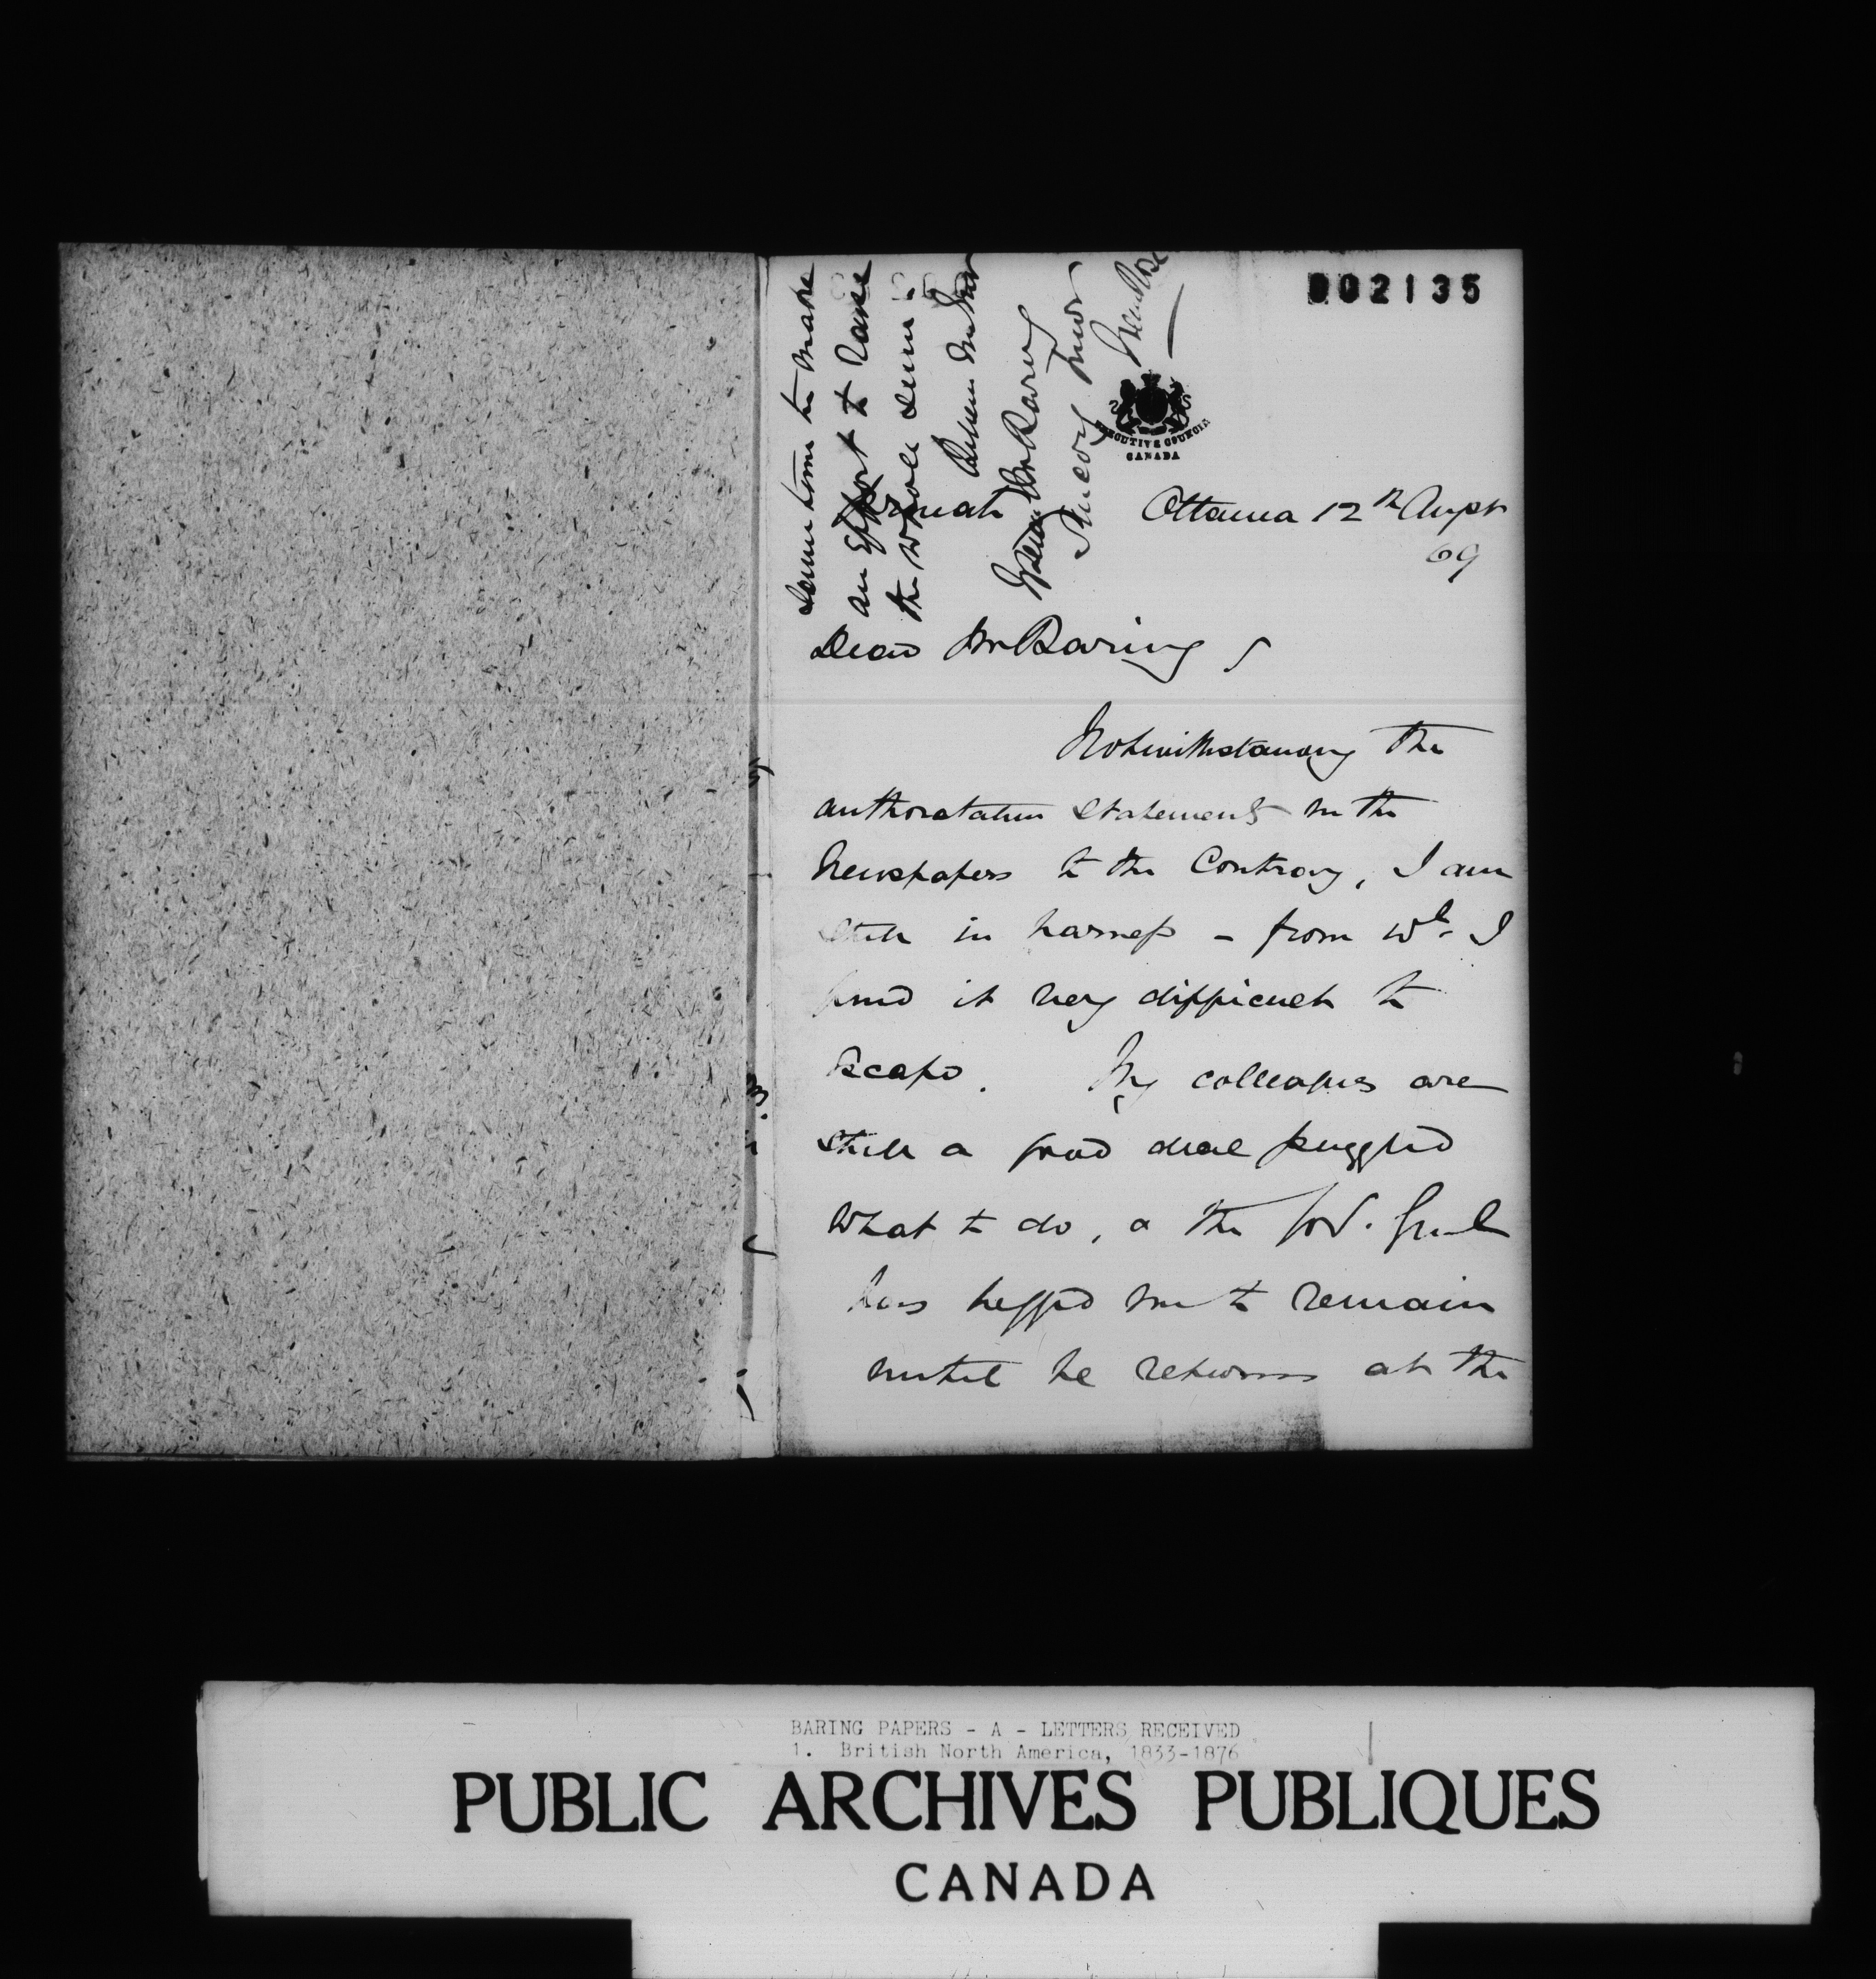 002135
some time to make
an Effort to raise
the whole sum.
Believe me Dear
Mr Baring
Sincerely Yours
John Rose
EXECUTIVE COUNCIL
CANADA
Private
Ottawa 12th Augst
69
Dear Mr Baring,
Notwithstanding the
authoratative statements in the
Newspapers to the Contrary, I am
still in harness - from wh. I
find it very difficult to
Escape. My colleagues are
still a good deal puzzled
what to do, & the Gov. Genl
has begged me to remain
until he returns at the
BARING PAPERS - A - LETTERS RECEIVED
1. British North America, 1833-1876
PUBLIC ARCHIVES PUBLIQUES
CANADA